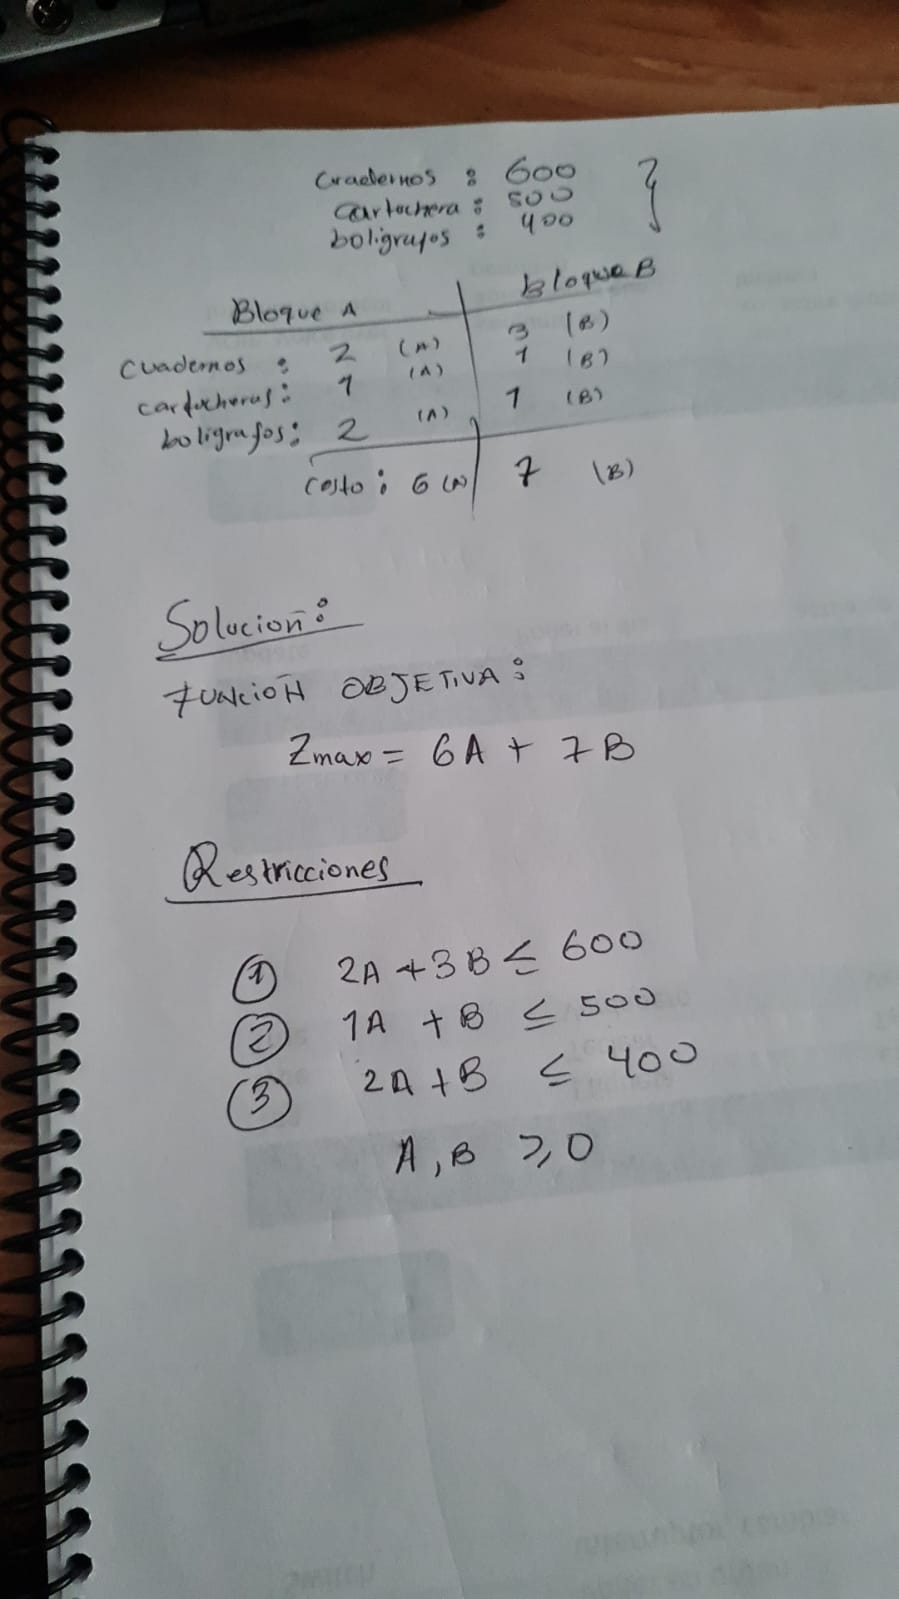 Cuadernos : 600
Cartuchera : 500
boligrafos : 400
Bloque A bloque B
Cuadernos : 2 (A) 3 (B)
cartucheras : 1 (A) 1 (B)
boligrafos : 2 (A) 1 (B)
Costo : 6 (A) 7 (B)
Solucion :
FUNCION OBJETIVA :
Zmax = 6A + 7B
Restricciones
① 2A + 3B ≤ 600
② 1A + B ≤ 500
③ 2A + B ≤ 400
A, B ≥ 0